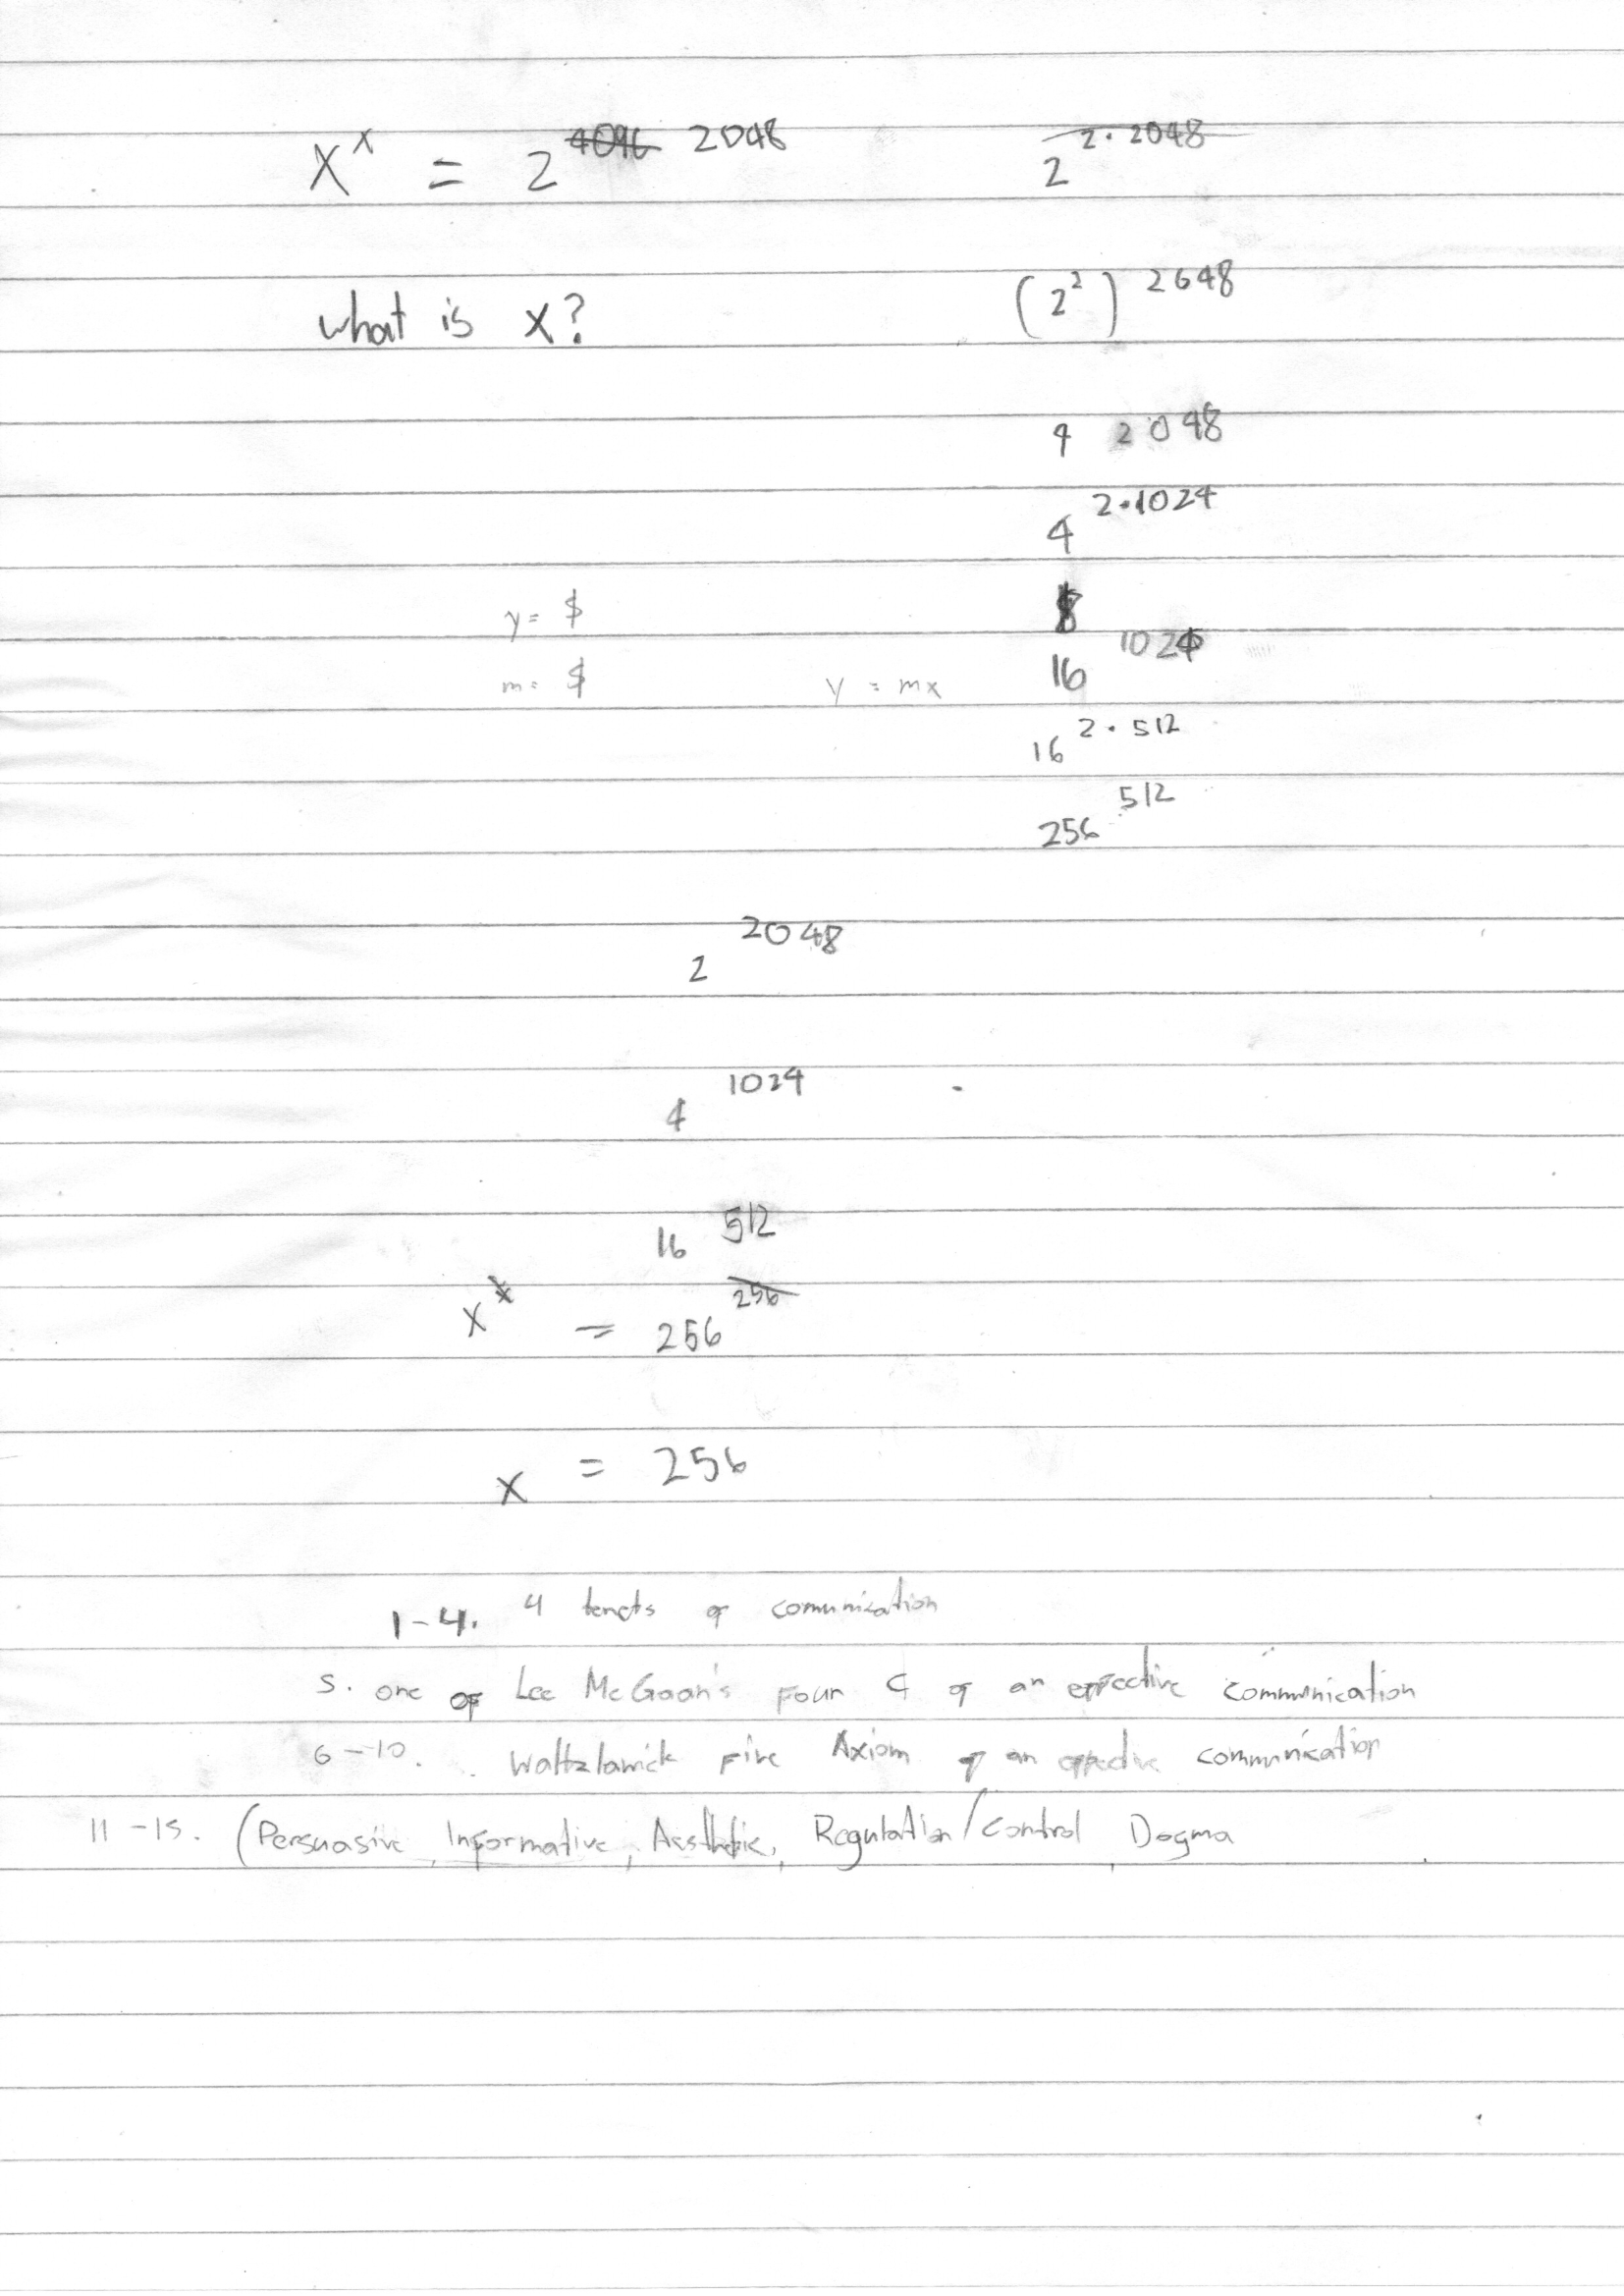 x^x = 2^4096 2048
2^2·2048
what is x?
(2^2)^2048
4^2048
4^2·1024
8
y = $
16^1024
m = $
y = mx
16^2·512
256^512
2^2048
4^1024
16^512
x^x = 256^256
x = 256
1-4. 4 tenets of comunication
5. one of Lee McGaan's Four C of an effective communication
6-10. Waltzlawick Five Axiom of an effective communication
11-15. (Persuasive, Informative, Aesthetic, Regulation/Control, Dogma